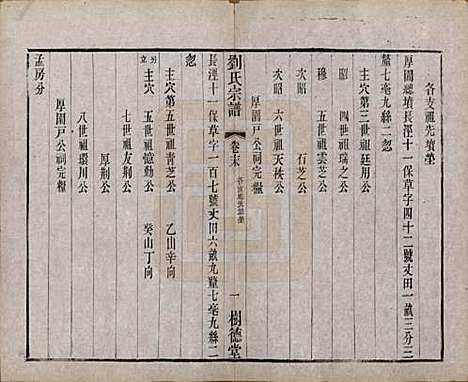 各支祖先墳塋
厚園總墳長涇十一保草字四十二號丈田一畝三分三
釐七毫九絲二忽
主穴 第三世祖廷用公
昭 四世祖瑞之公
穆 五世祖雲芝公
石芝公
次昭 六世祖天秩公
厚園戸公祠完糧
劉氏宗譜 卷末 各支祖先墳塋 一 樹德堂
長涇十一保草字一百七號丈田六畝九釐七毫九絲二
忽
主穴 第五世祖青芝公 乙山辛向
另立 主穴 六世祖憶勤公 癸山丁向
七世祖友荆公
厚荆公
八世祖環川公
厚園戸公祠完糧
孟房分